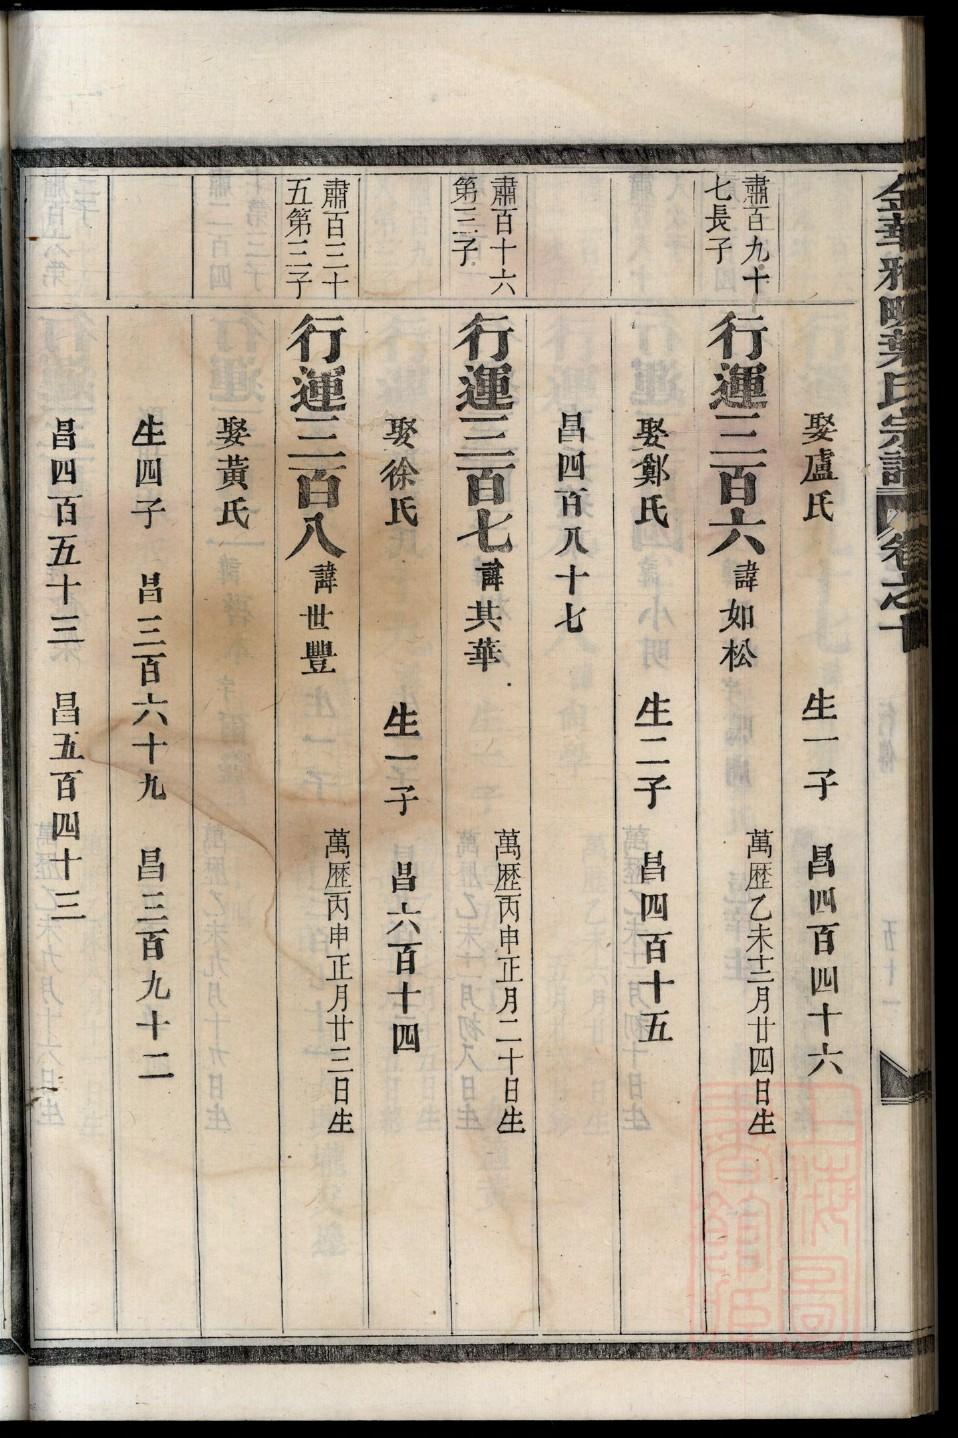 金華雅畈葉氏宗譜 卷之十
娶盧氏 生一子 昌四百四十六
肅百九十七長子
行運三百六 諱如松 萬歷乙未十二月廿四日生
娶鄭氏 生二子 昌四百十五
昌四百八十七
肅百十六第三子
行運三百七 諱其華 萬歷丙申正月二十日生
娶徐氏 生一子 昌六百十四
肅百三十五第三子
行運三百八 諱世豐 萬歷丙申正月廿三日生
娶黃氏
生四子 昌三百六十九 昌三百九十二
昌四百五十三 昌五百四十三